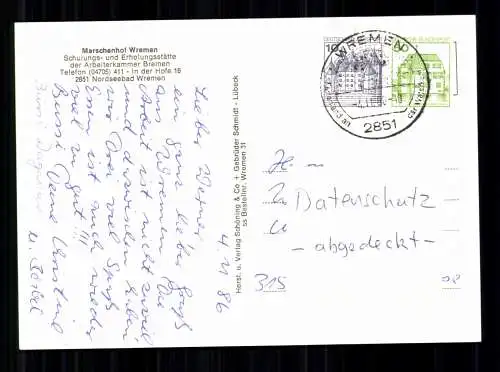 Marschenhof Wremen
Schulungs- und Erholungsstätte
der Arbeiterkammer Bremen
Telefon (04705) 411 - In der Hofe 16
2851 Nordseebad Wremen
4.11.86
Lieber Werner,
ein ganz lieber Gruß
aus Wremen. Die
Arbeit ist nicht zuviel
und dazwischen haben
wir viel Spaß
Essen ist auch wieder
viel zu gut!!!
Bussi Deine
u. Bärbel
Herst. u. Verlag Schöning & Co + Gebrüder Schmidt - Lübeck
ss Besteller, Wremen 31
10
WREMEN
2851
Datenschutz
- abgedeckt -
315